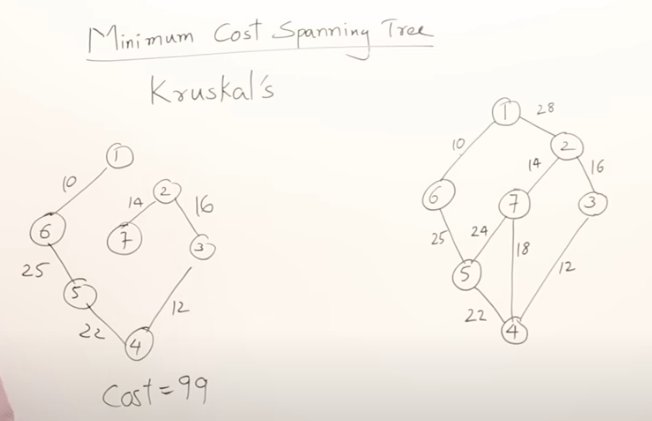 Minimum Cost Spanning Tree
Kruskal's
1
10
2
14
16
6
7
3
25
5
12
22
4
Cost = 99
1
28
2
10
14
16
6
7
3
25
24
18
5
12
22
4